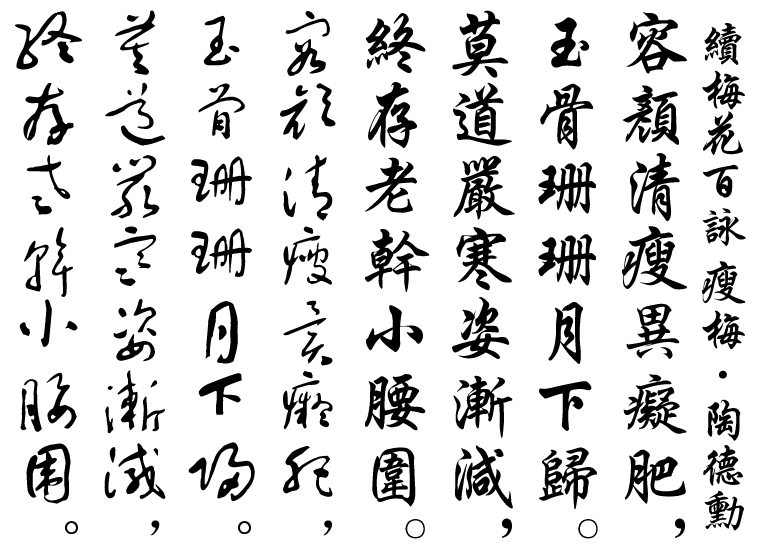 續梅花百詠瘦梅・陶德勳
容顏清瘦異癡肥，
玉骨珊珊月下歸。
莫道嚴寒姿漸減，
終存老幹小腰圍。
容顏清瘦異癡肥，
玉骨珊珊月下歸。
莫道嚴寒姿漸減，
終存老幹小腰圍。